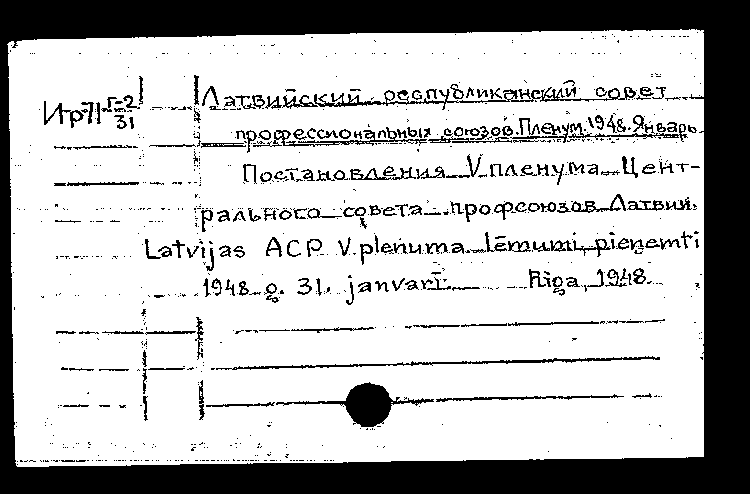 Игр71 Г-2/31
Латвийский республиканский совет
профессиональных союзов. Пленум. 1948. Январь
Постановления V пленума Цент-
рального совета профсоюзов Латвии.
Latvijas ACP V plenuma lēmumi, pieņemti
1948 g. 31. janvarī. Rīga, 1948.